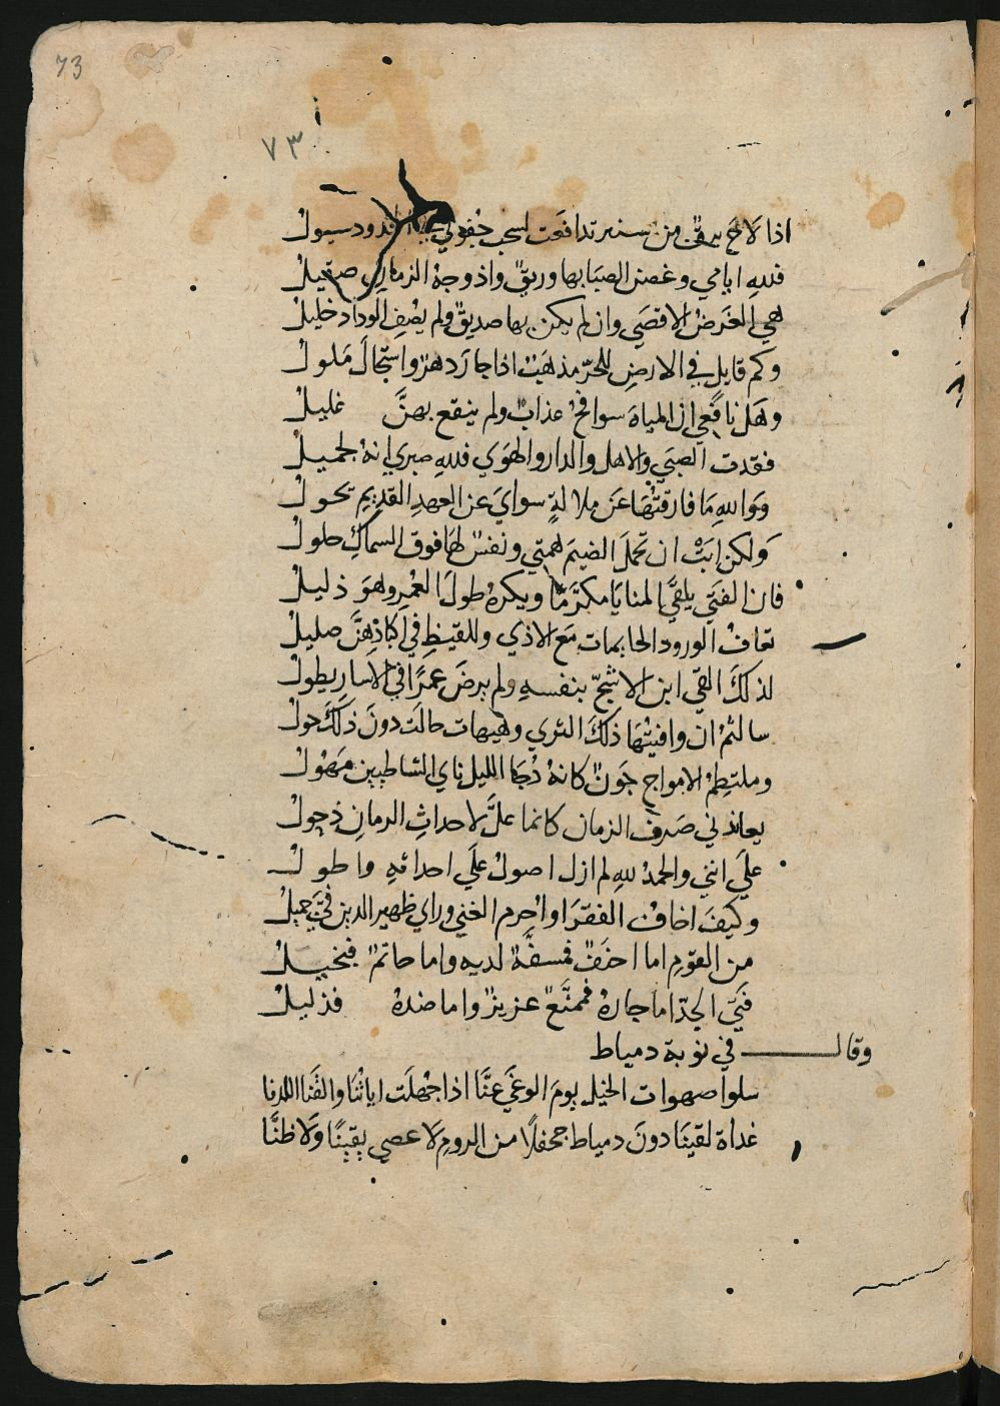 73
٧٣
اذا لَاحَ برقٌ من سنير تدافعَت لسحب جفوني في الخدود سيولُ
فللهِ ايامي وغصن الصبَا بها وريقٌ واذ وجهُ الزمانِ صقيلُ
هي الغَرَضُ الاقصَي وان لم يكن بها صديقٌ ولم يُصْفِ الودادَ خليلُ
وكم قايلٍ في الارضِ للحرّ مذهَبٌ اذا جارَ دهرٌ واستحالَ مَلولُ
وهَل نافِعي ان المياهَ سوافحٌ عذابٌ ولم ينقع بهنَّ غليلُ
فقدت الصبَي والاهل والدار والهوَي فللهِ صبري انهُ لجميلُ
ووَاللهِ مَا فارقتُهَا عَن ملالةٍ سوايَ عن العهدِ القديمِ يحولُ
وَلكن ابَتْ ان تحملَ الضيمَ همّتي ونفسٌ لهَا فوق السماكِ حلولُ
فان الفتَي يلقَي المنايَا مكرَّمًا ويكرهُ طولَ العُمرِ وهوَ ذليلُ
تعافُ الورود الحايمات مَع الاذي وللقيظِ في اكبادِهنَّ صليلُ
لذلكَ القي ابن الاشجّ بنفسهِ ولم يرضَ عمرًا في الاسارِ يطولُ
سالثمُ ان وافيتُهَا ذلكَ الثري وهيهات حالَت دونَ ذلكَ حولُ
وملتطِمُ الامواجِ جَونٌ كانهُ دُجَا الليل ناي الشاطيين مَهُولُ
يعاندني صَرفُ الزمان كانما علَيَّ لاحداثِ الزمانِ ذحولُ
علَي انني والحمدُ للهِ لم ازل اصولُ علَي احداثهِ واطولُ
وكيفَ اخافُ الفقرَ او احرم الغني وراي ظهير الدين فيَّ جميلُ
من القوم اما احنَفٌ فمسفَّهٌ لديهِ واما حاتمٌ فبخيلُ
فتَي الجدّ اما جارهُ فممنَّعٌ عزيزٌ واما ضدهُ فذليلُ
وقال في نوبة دمياط
سلوا صهوات الخيل يومَ الوغَي عنَّا اذا جُهِلَت اياتُنَا والقَنَا اللدنا
غداة لقينَا دونَ دمياط جحفلًا من الرومِ لَا يحصي يقينًا ولَا ظنَّا